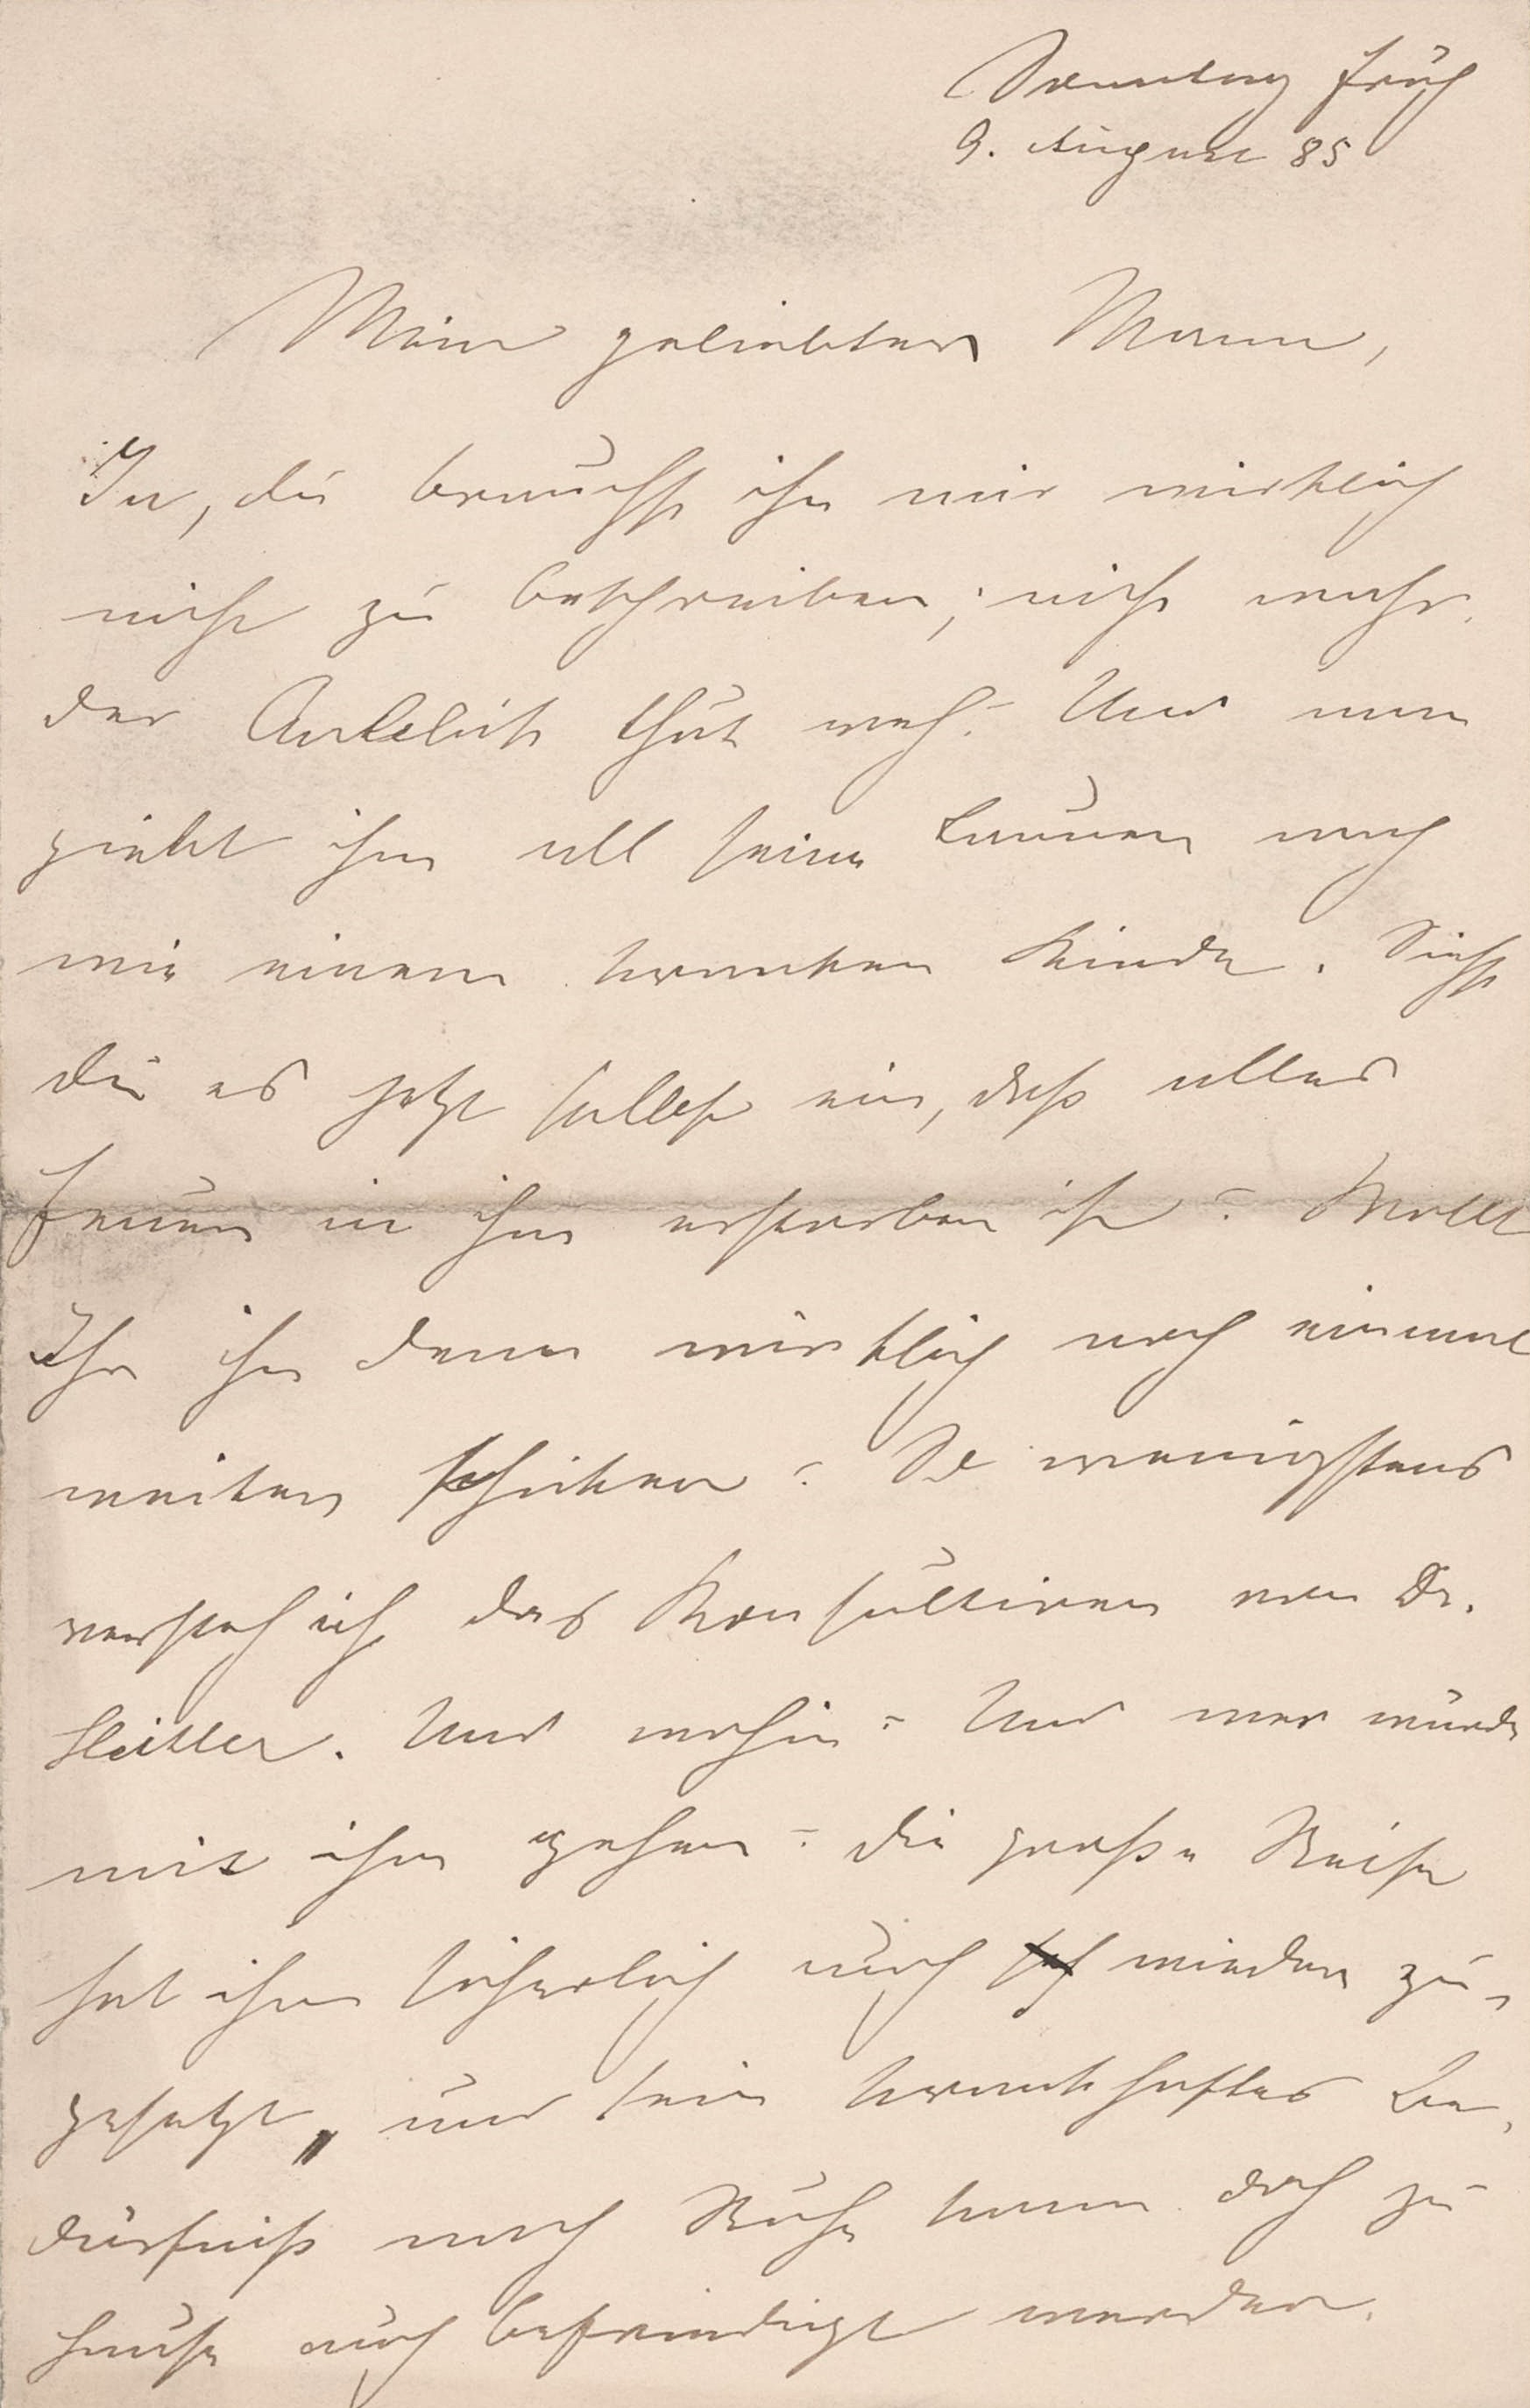 Sonntag früh
9. August 85
Mein geliebter Mann,
Ja, du brauchst ihn mir wirklich
nicht zu beschreiben; nicht wahr,
der Anblick thut weh? Und man
giebt ihm all seine Launen nach
wie einem kranken Kinde. Siehst
du es jetzt selbst ein, daß alles
Feuer in ihm erstorben ist? Wollt
Ihr ihn denn wirklich noch einmal
weiter schicken? So wenigstens
versteh ich das Konsultiren von Dr.
Heitler. Und wohin? Und wer würde
mit ihm gehen? die große Reise
hat ihm sicherlich auch wieder zu-
gesetzt, und sein krankhaftes Be-
dürfniß nach Ruhe kann doch zu
Hause auch befriedigt werden.